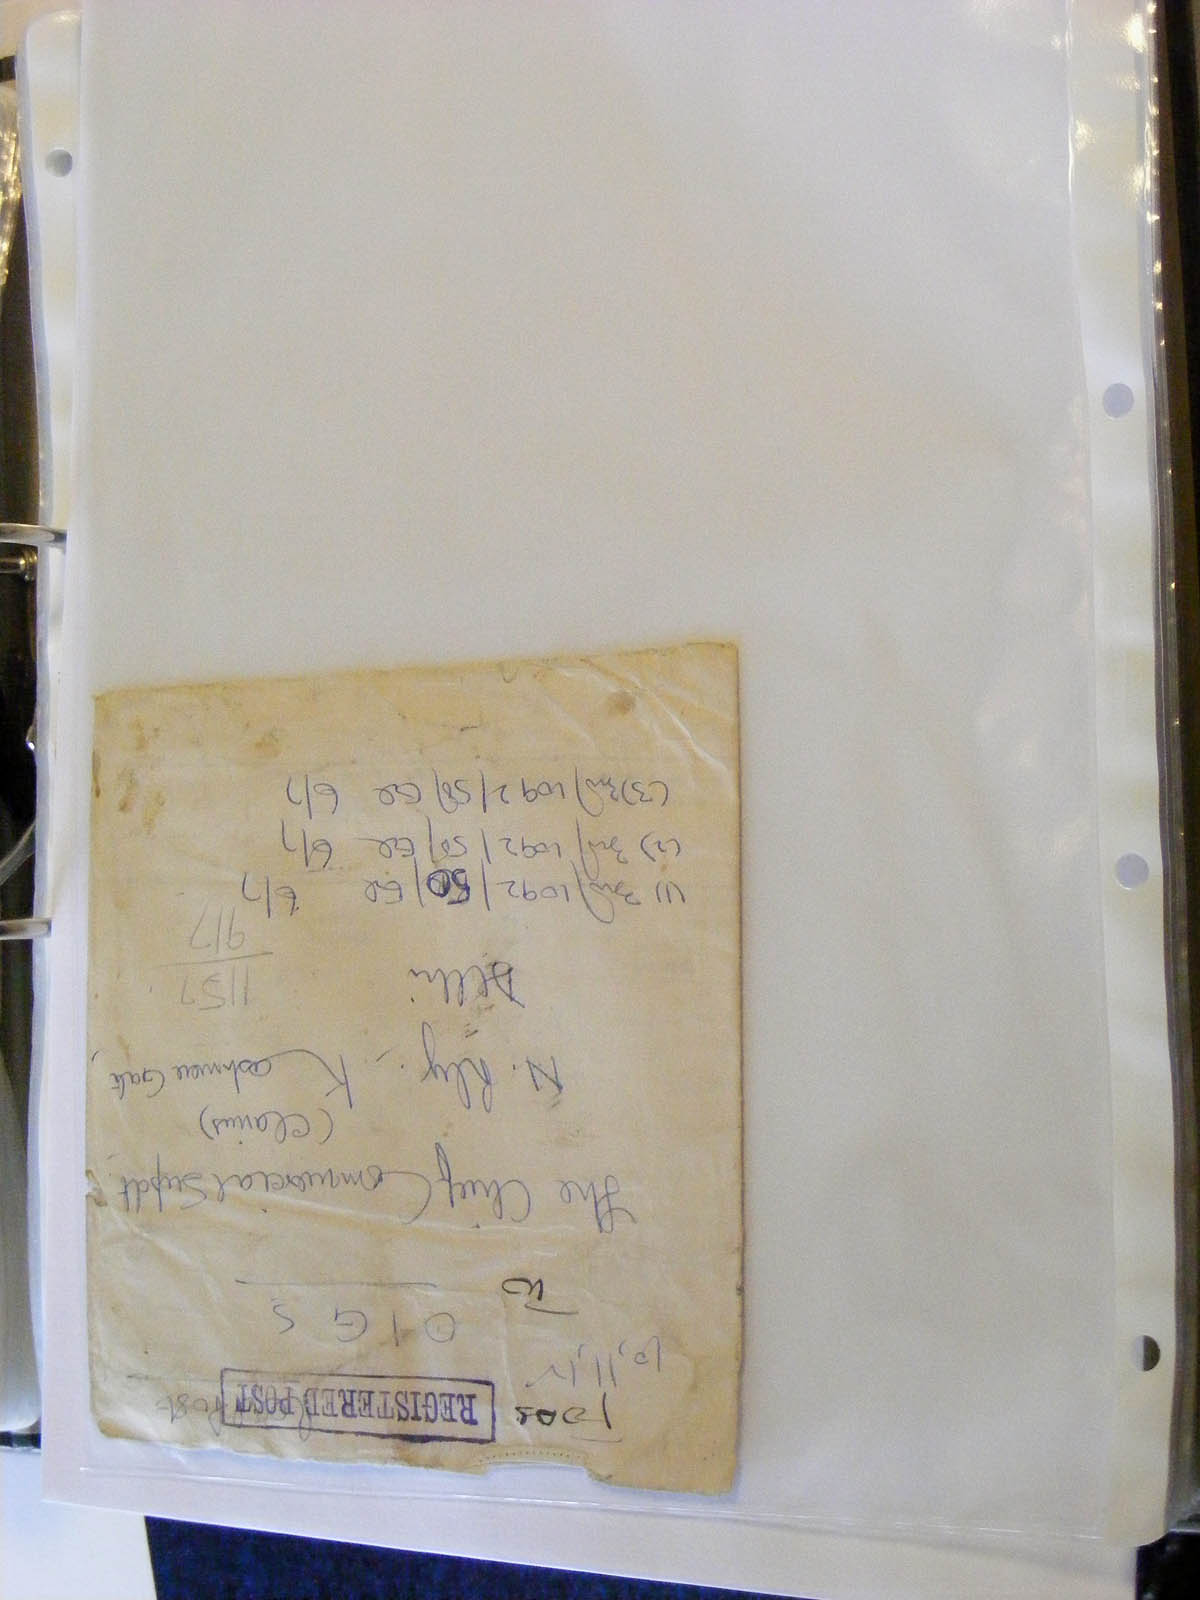 REGISTERED POST
10, 11, 12
O I G S
To
The Chief Commercial Supdt.
(Claims)
N. Rly. - Kashmere Gate,
Delhi
1157
9/7
(1) /1092/50/ 6/7
(2) /1092/50/ 6/7
(3) /1092/50/ 6/7